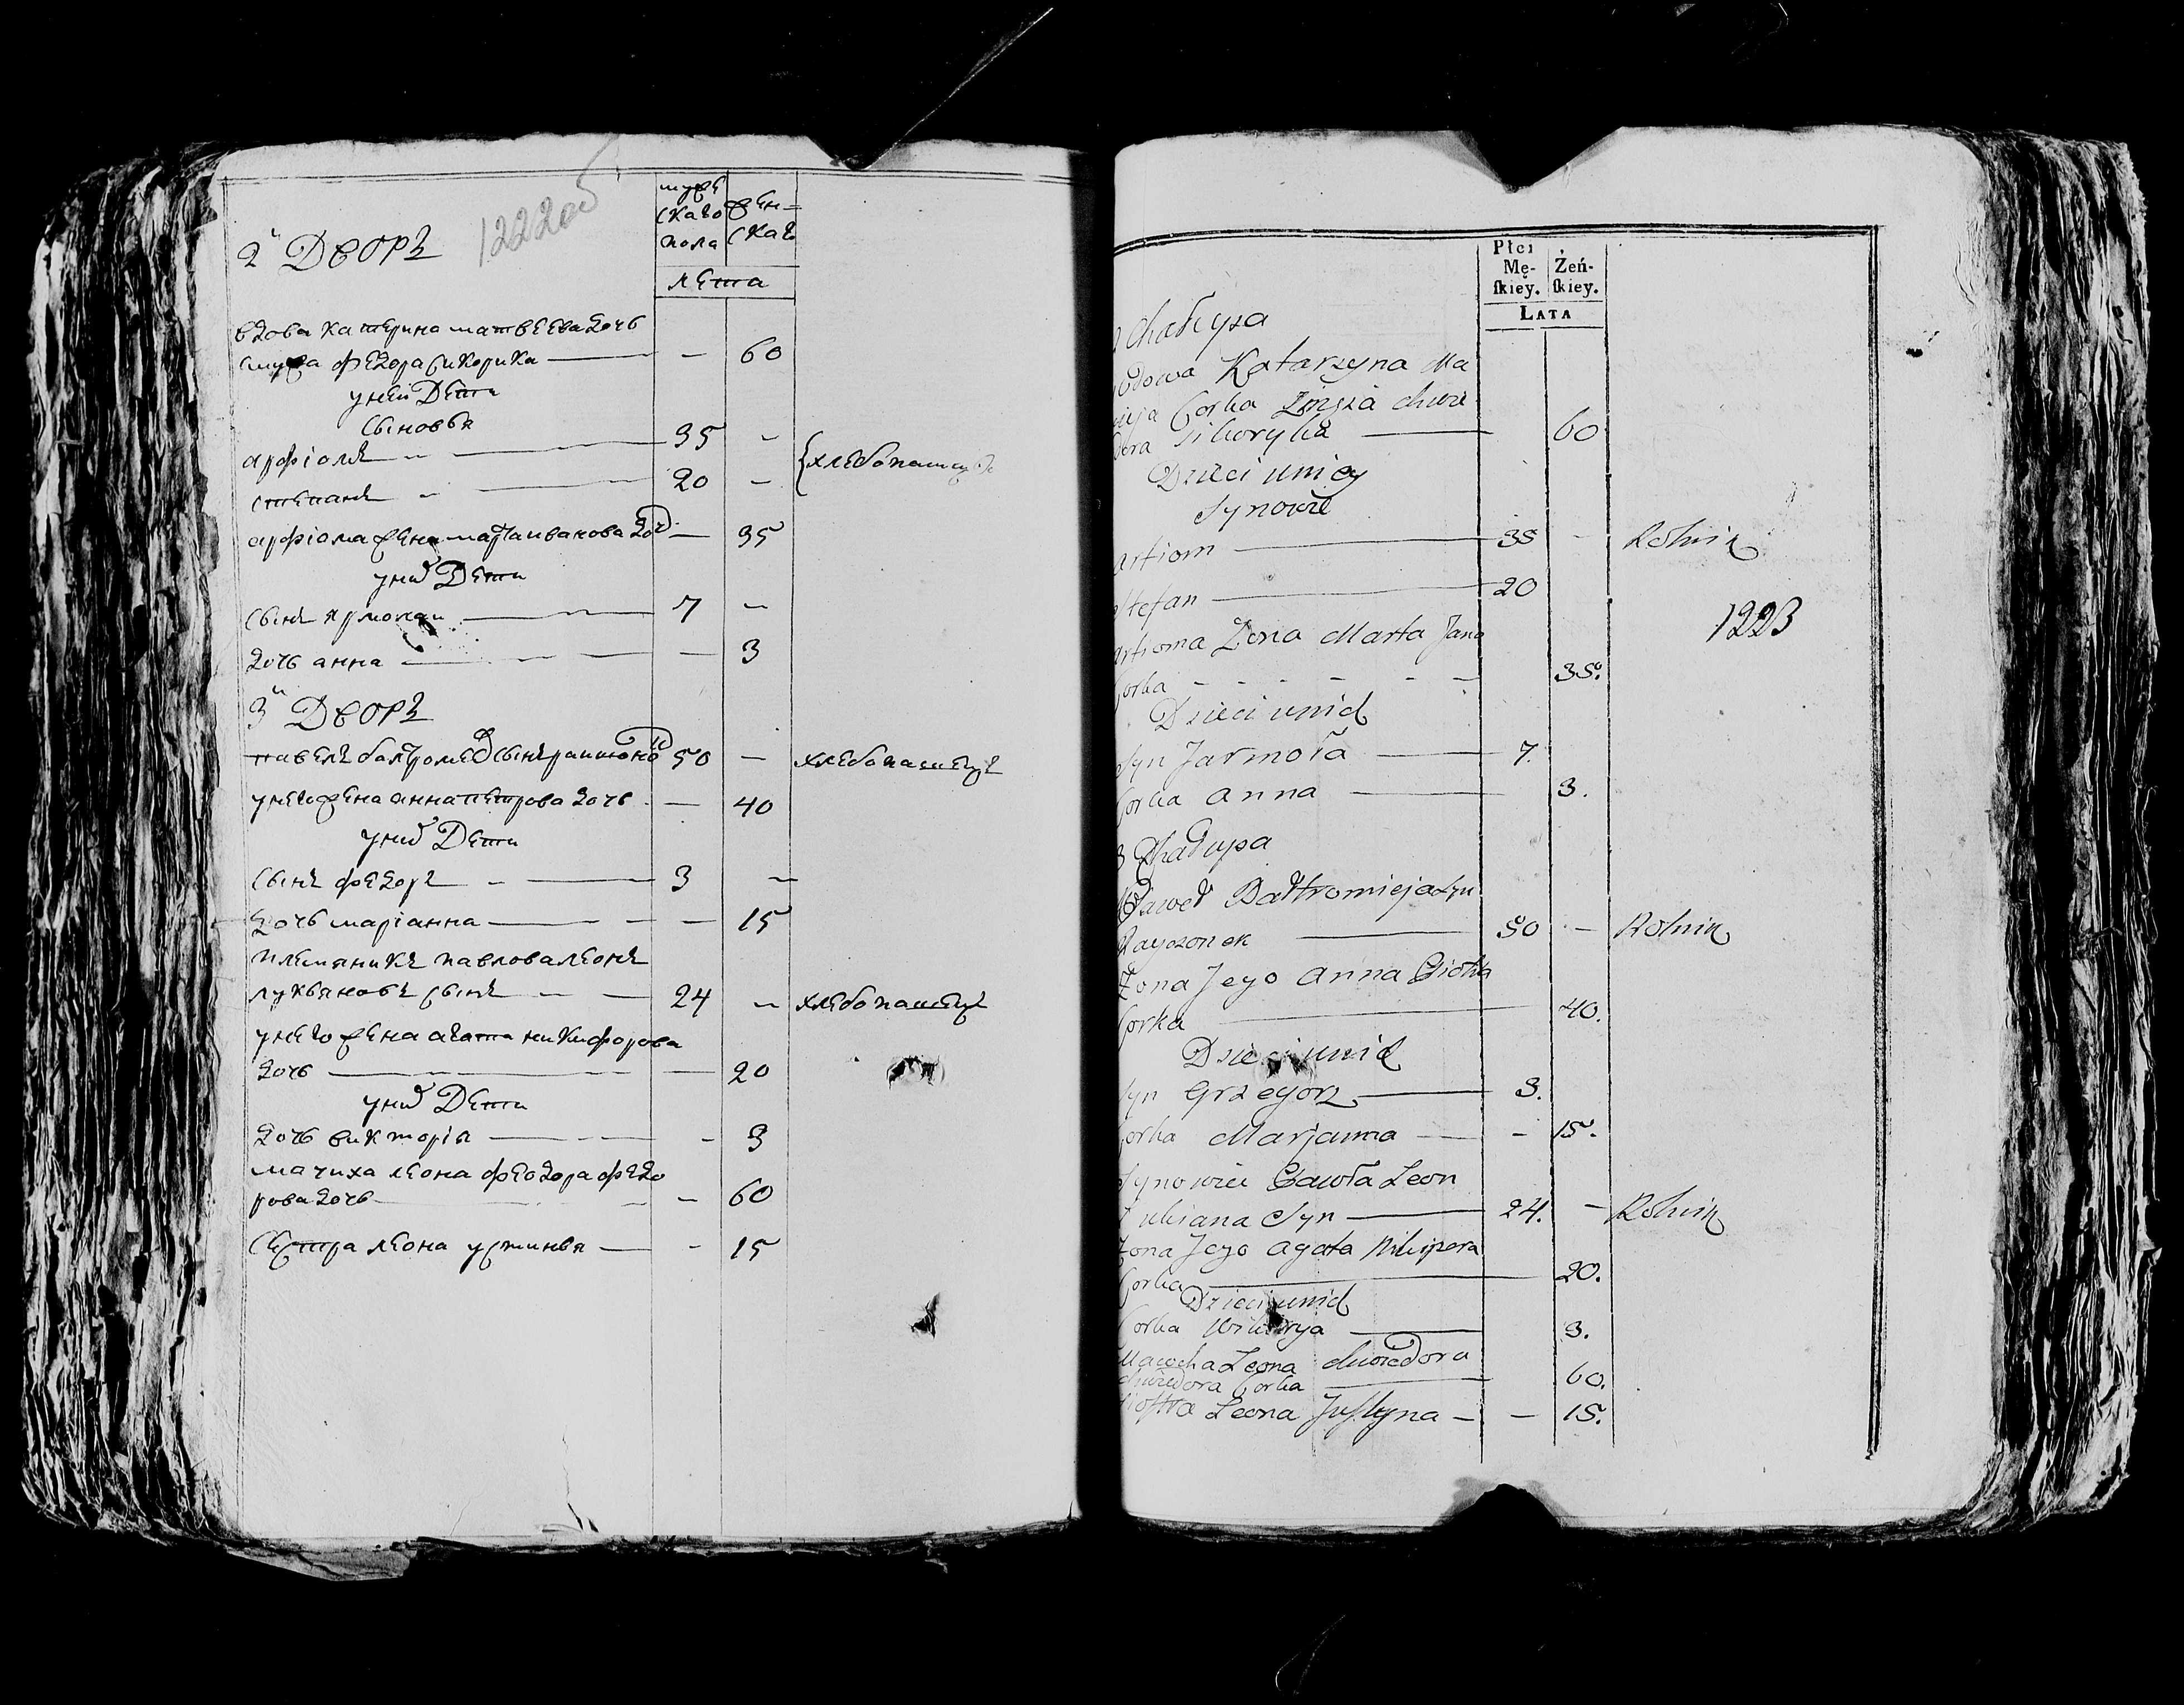 1222об
2й Дворъ
муже
скаго
пола
жен=
скаго
лета
вдова катерина матвеева дочь
мужа федора сикорика — — 60
у неи Дети
сыновья
арфіомъ — 35 —
степанъ — 20 —
хлебопашцы
арфіома жена марта иванова доч — 35
у них Дети
сынъ ярмолаи — 7 —
дочь анна — — 3
3й Дворъ
павелъ балтромеев сынъ 50 — хлебопашецъ
у него жена анна петрова дочь — 40
у них Дети
сынъ федоръ — 3 —
дочь маріанна — — 15
племяникъ павлова леонъ
лукьяновъ сынъ — 24 — хлебопашецъ
у него жена агата никифорова
дочь — — 20
у них Дети
дочь викторія — — 3
мачиха леона феодора федо
рова дочь — — 60
сестра леона устинья — — 15
Płci
Mę-
ſkiey.
Żeń-
ſkiey.
LATA
2 Chałupa
Wdowa Katarzyna Ma
cieja Corka Męża Chwe
dora Sikoryka — 60
Dzieci u niey
Synowie
Artiom — 35 — Rolnik
Stefan — 20
1223
Artioma Żona Marta Jana
Corka — 35.
Dzieci u nich
Syn Jarmoła — 7.
Corka Anna — 3.
3 Chałupa
Paweł Bałtromieja Syn
Rayczonek — 50 — Rolnik
Żona Jego Anna Piotra
Corka — 40.
Dzieci u nich
Syn Grzegorz — 3.
Corka Marjanna — — 15.
Synowiec Pawła Leon
Łukiana Syn — 24. — Rolnik
Żona Jego Agata Nikipera
Corka — 20.
Dzieci u nich
Corka Wiktorya — 3.
Macocha Leona Chwiedora
Chwiedora Corka — 60.
Siostra Leona Justyna — — 15.